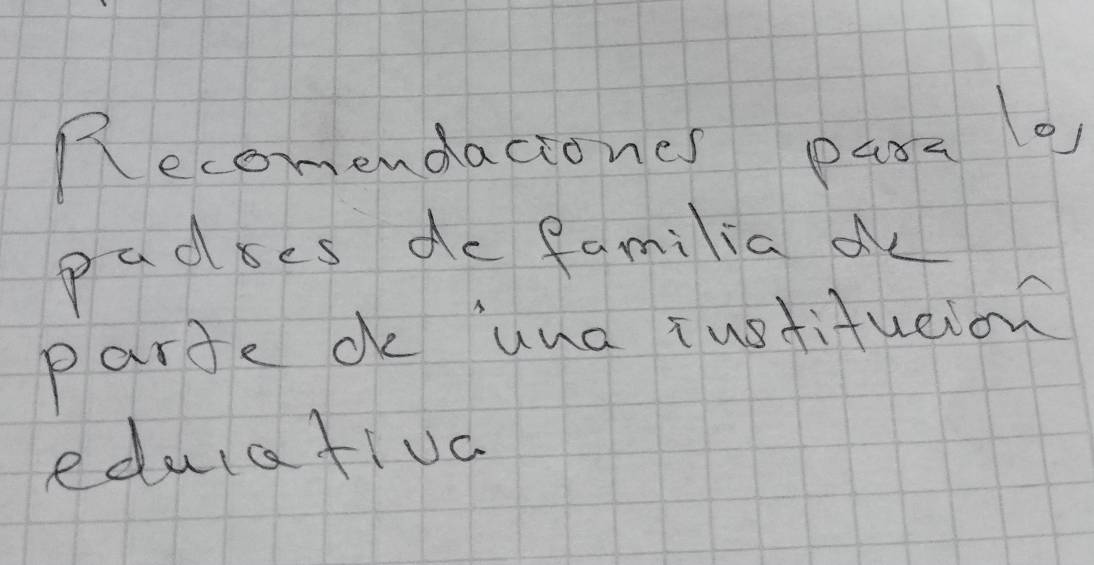 Recomendaciones para los
padres de familia de
parte de una institución
educativa